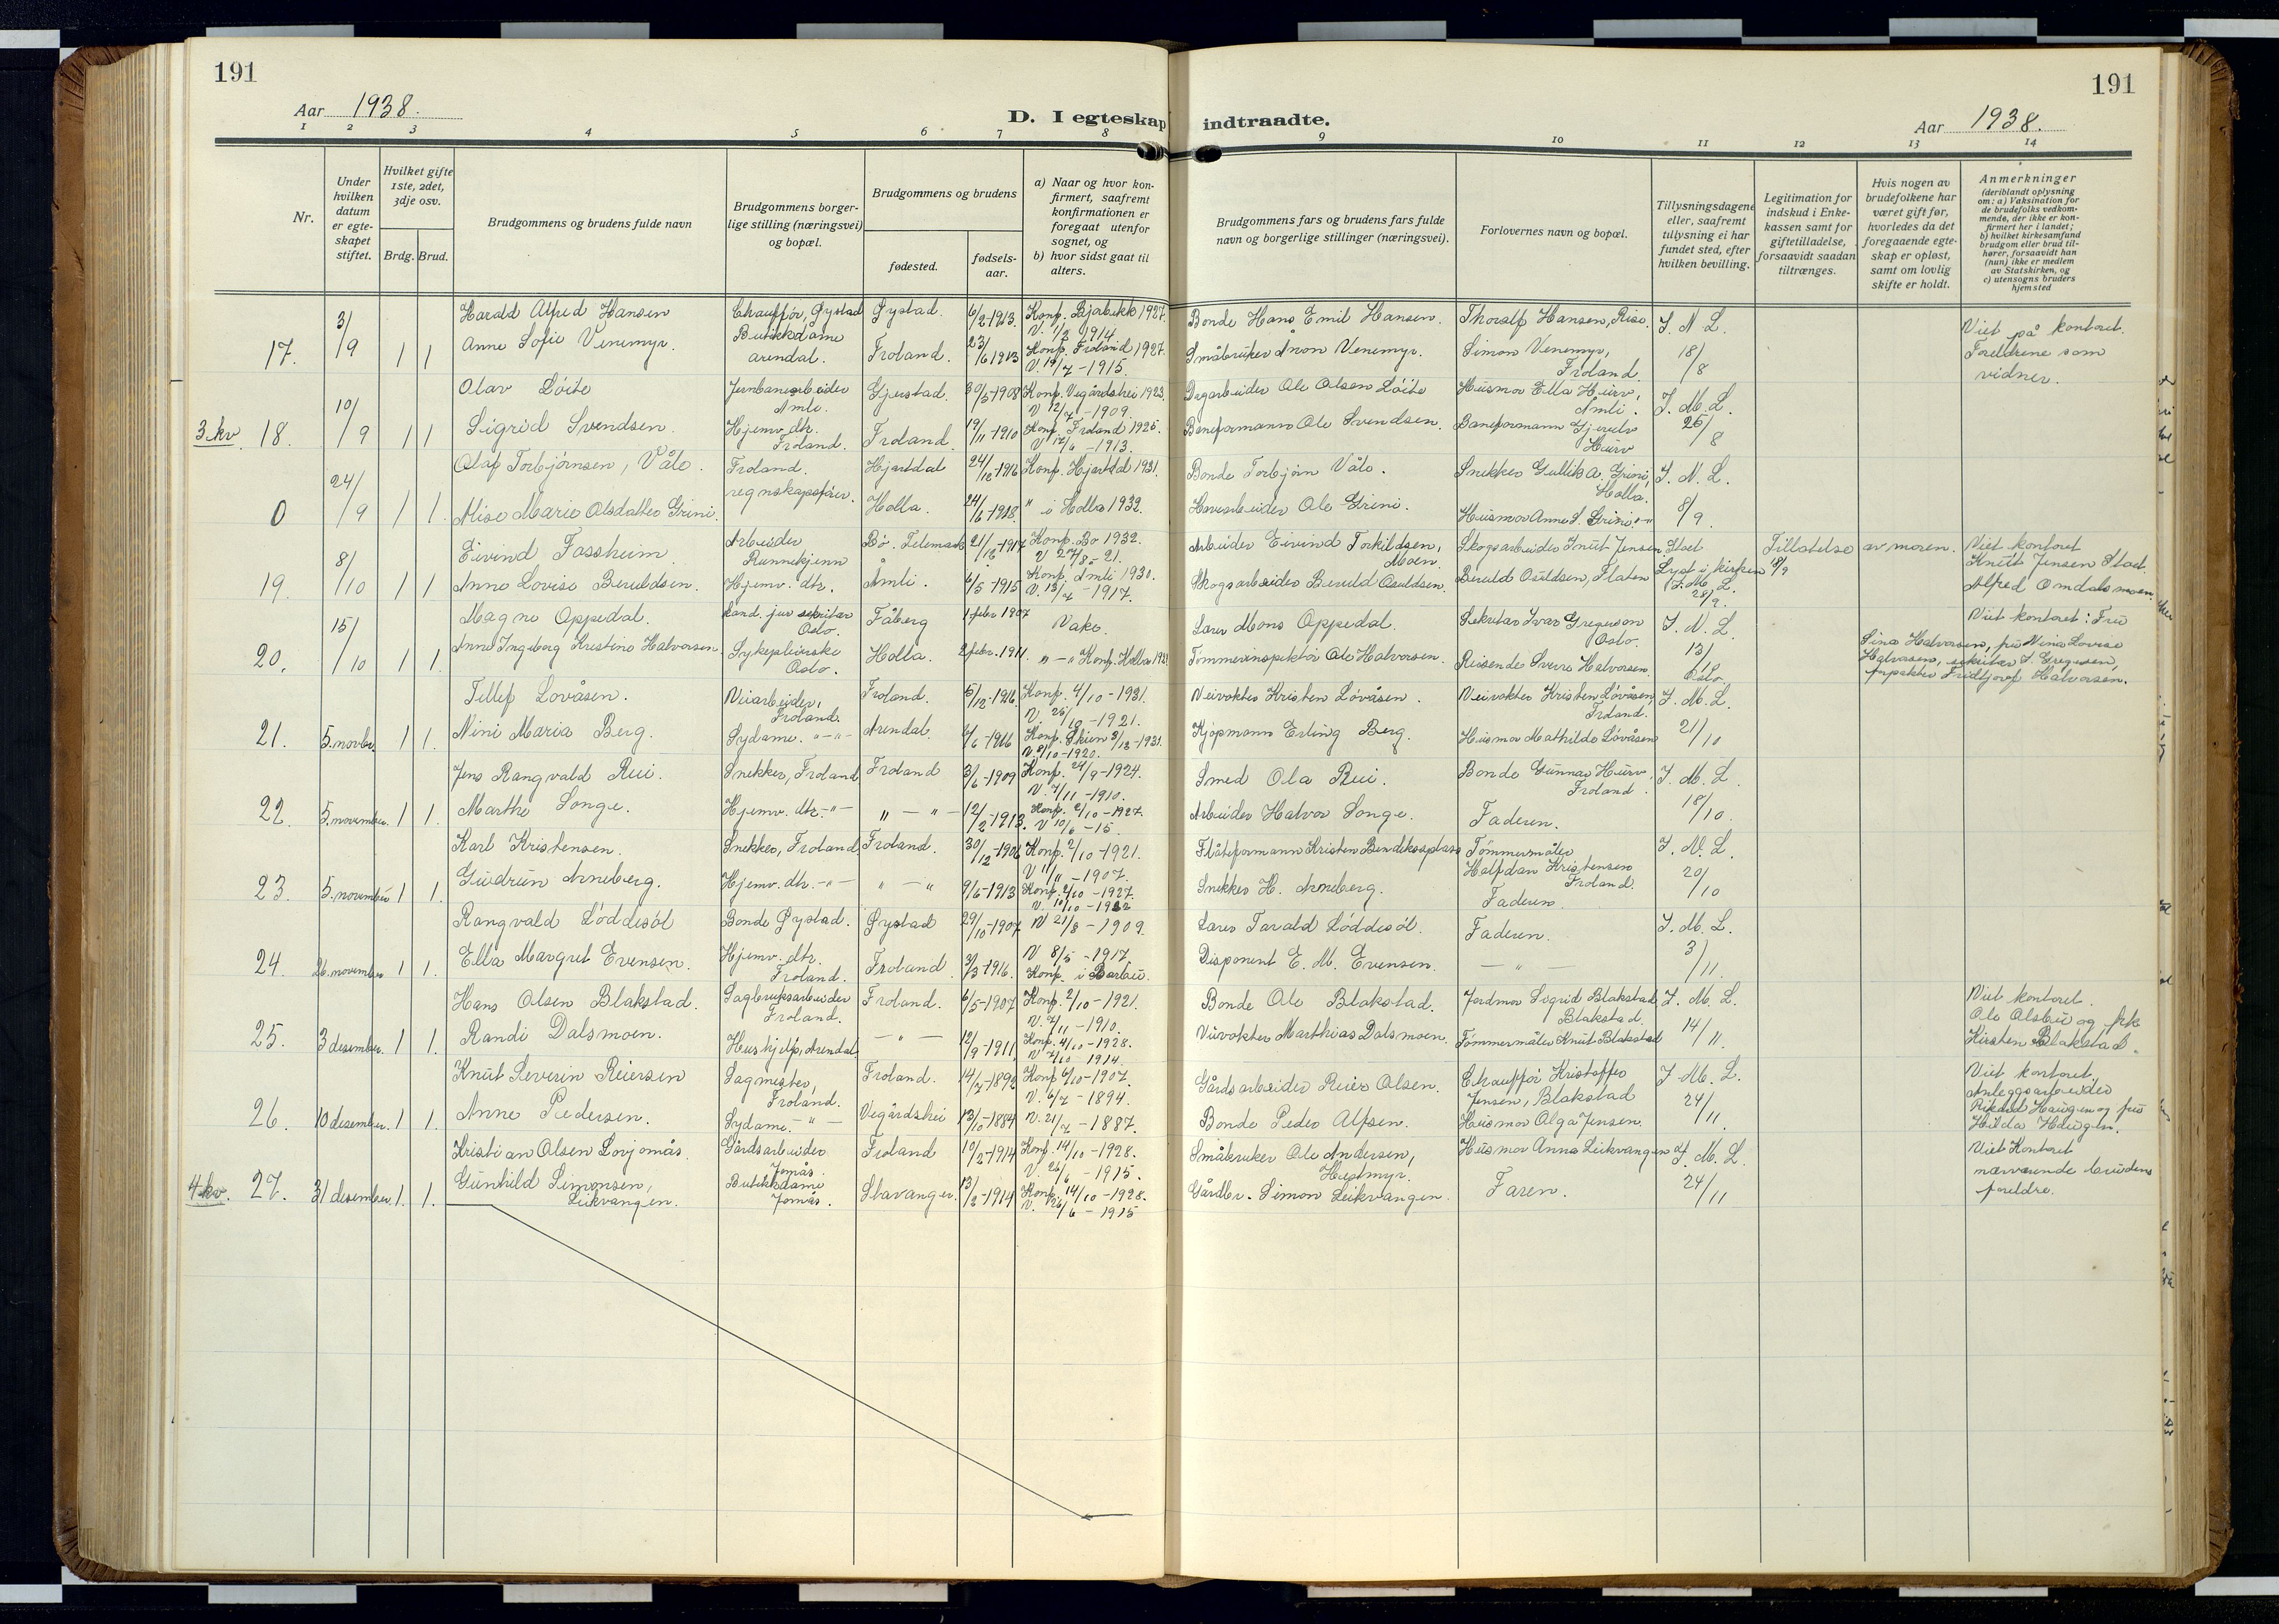 191
191
Aar 1938.
D. I egteskap indtraadte.
Aar 1938.
1 2 3 4 5 6 7 8 9 10 11 12 13 14
Nr.
Under hvilken datum er egteskapet stiftet.
Hvilket gifte 1ste, 2det, 3dje osv.
Brdg. Brud.
Brudgommens og brudens fulde navn
Brudgommens borgerlige stilling (næringsvei) og bopæl.
Brudgommens og brudens
fødested.
fødselsaar.
a) Naar og hvor konfirmert, saafremt konfirmationen er foregaat utenfor sognet, og
b) hvor sidst gaat til alters.
Brudgommens fars og brudens fars fulde navn og borgerlige stillinger (næringsvei).
Forlovernes navn og bopæl.
Tillysningsdagene eller, saafremt tillysning ei har fundet sted, efter hvilken bevilling.
Legitimation for indskud i Enkekassen samt for giftetilladelse, forsaavidt saadan tiltrænges.
Hvis nogen av brudefolkene har været gift før, hvorledes da det foregaaende egteskap er opløst, samt om lovlig skifte er holdt.
Anmerkninger
(deriblandt oplysning om: a) Vaksination for de brudefolks vedkommende, der ikke er konfirmert her i landet;
b) hvilket kirkesamfund brudgom eller brud tilhører, forsaavidt han (hun) ikke er medlem av Statskirken, og
c) utensogns bruders hjemsted
17. 3/9 1 1
Harald Alfred Hansen Chauffør, Øystad Øystad. 6/2-1913. Konf. Bjorbekk 1927. V. 1/7 1914. Bonde Hans Emil Hansen. Thoralf Hansen, Rise. T. N. L. Viet på kontoret.
Anne Sofie Venemyr. Butikkdame Arendal. Froland. 23/6 1913 Konf. Froland 1927. V. 19/7-1915. Småbruker Aron Venemyr. Simon Venemyr, Froland. 18/8 Foreldrene som vidner.
3 kv 18. 10/9 1 1
Olav Löite Jernbanearbeider Åmli. Gjerstad. 30/5-1908 Konf. Vegårdshei 1923. V 12/7-1909. Dagarbeider Ole Olsen Löite Husmor Ella Hurv, Åmli. T. M. L.
Sigrid Svendsen. Hjemv. dtr. Froland. Froland. 19/11-1910 Konf. Froland 1925. V 17/6-1913. Baneformann Ole Svendsen. Baneformann Gjerulv Hurv 25/8
0 24/9 1 1.
Olaf Torbjørnsen, Våle. Froland. Hjartdal 24/12-1916 Konf. Hjartdal 1931. Bonde Torbjörn Våle. Snekker Gullik A. Grini, Holla. T. N. L.
Alise Marie Olsdatter Grini. regnskapsfører. Holla. 24/6-1918. " i Holla 1932. Havnearbeider Ole Grini. Husmor Anne S. Grini "-" 8/9.
19. 8/10 1 1
Eivind Fossheim Arbeider Rannekjenn Bö. Telemark 21/12-1917 Konf. Bø 1932. V 27/8-21. Arbeider Eivind Torkildsen, Moen. Skogsarbeider Knut Jensen Stoet Lyst i kirken 18/9 Tillatelse av moren. Viet kontoret Knut Jensen Stoet.
Anne Lovise Beruldsen. Hjemv. dtr. Åmli. 6/5-1915 Konf. Åmli 1930. V. 13/7-1917. Skogsarbeider Beruld Osuldsen. Beruld Osuldsen, Flaten T. M. L. 28/9. Alfred Omdalsmoen.
20. 15/10 1 1.
Magne Oppedal. kand. jur sekretær Oslo. Fåberg 1 febr 1907 Vake. Lærer Mons Oppedal. Sekretær Ivar Gregersen Oslo. T. N. L. Viet kontoret: Fru
Anne Ingeborg Kristine Halvorsen Sykepleierske Oslo. Holla. 2 febr. 1911. "-" Konf. Holla Tømmerinspektör Ole Halvorsen. Reisende Sverre Halvorsen Oslo. 13/10 Sina Halvorsen, fru Nina Lovise Halvorsen, sekretær I. Gregersen, Fridtjof Halvorsen.
21. 5. novbr 1 1.
Tellef Lovåsen. Veiarbeider, Froland. Froland. 5/12-1906. Konf. 4/10-1931. V. 25/10-1921. Veivokter Kristen Lövåsen. Veivokter Kristen Lövåsen, Froland. T. M. L.
Nini Maria Berg. Sydame. "-"- Arendal. 4/6-1916 Konf. Skien 8/12-1931. V. 9/10-1920. Kjøpmann Erling Berg. Husmor Mathilde Lövåsen 21/10
22. 5. november. 1 1.
Jens Rangvald Rui. Snekker, Froland Froland 3/6-1909 Konf. 24/9-1924. V. 7/11-1910. Smed Ola Rui. Bonde Gunnar Hurv, Froland. T. M. L.
Marthe Songe. Hjemv. dtr. -"- "-"- 12/2-1913. Konf. 2/10-1927. V 10/6-15. Arbeider Halvor Songe. Faderen. 18/10.
23. 5. november 1 1.
Karl Kristensen. Snekker, Froland. Froland. 30/12-1906 Konf. 2/10-1921. V 11/11-1907. Flåteformann Kristen Bendiksplass Tömmermåler Halfdan Kristensen Froland. T. N. L.
Gudrun Arneberg. Hjemv. dtr. -"- "-" 9/6-1913 Konf. 2/10-1927. V. 10/10-1922 Snekker H. Arneberg. Faderen. 20/10
24. 26. november 1 1.
Rangvald Löddesöl Bonde Öystad. Öystad 29/10-1907 V 21/8-1909. Lærer Tarald Löddesöl. Faderen. T. M. L.
Ella Margret Evensen. Hjemv. dtr. Froland. Froland 3/3-1916. V 8/5-1917. Konf. i Barbu. Disponent E. M. Evensen. - " - 3/11.
25. 3 desember. 1 1.
Hans Olsen Blakstad. Sagbruksarbeider Froland. Froland. 6/5-1907 Konf. 2/10-1921. V. 7/11-1910. Bonde Ole Blakstad. Jordmor Sigrid Blakstad Blakstad. T. M. L. Viet kontoret.
Randi Dalsmoen. Hushjelp, Arendal - " - 12/9-1911 Konf. 4/10-1928. V 7/10-1914. Veivokter Marthias Dalsmoen. Tömmermåler Knut Blakstad 14/11. Ole Olsbu og frk Kirsten Blakstad.
26. 10 desember. 1 1.
Knut Severin Reiersen Sagmester, Froland. Froland. 14/7-1892 Konf 6/10-1907. V. 6/7-1894. Gårdsarbeider Reier Olsen. Chauffør Kristoffer Jensen, Blakstad T. M. L. Viet kontoret, Anleggsarbeider
Anne Pedersen. Sydame. - " - Vegårdshei 13/10-1884 V. 21/7-1887. Bonde Peder Alfsen. Husmor Olga Jensen. 24/11. Rikard Haugen og fru Hilda Haugen.
4 kv. 27. 31 desember. 1. 1.
Kristian Olsen Lovjomås. Gårdsarbeider Jomås. Froland 10/2-1914 Konf. 14/10-1928. V. 26/6-1915. Småbruker Ole Andersen, Hestmyr. Husmor Anna Leikvangen T. M. L. Viet Kontoret
Gunhild Simonsen, Leikvangen. Butikkdame Jomås. Stavanger. 13/2-1914 Konf. 14/10-1928. V. 26/6-1915 Gårdbr. Simon Leikvangen. Faren. 24/11 nærværende brudens foreldre.